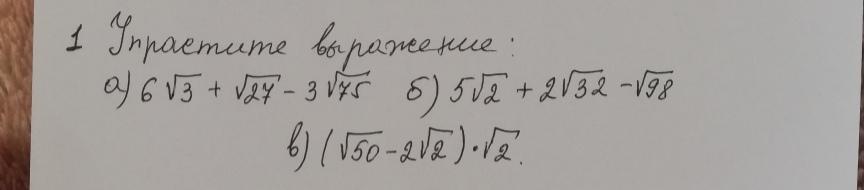 1 Упрастите выражение:
а) 6√3 + √27 - 3√75 б) 5√2 + 2√32 - √98
в) (√50 - 2√2) · √2.